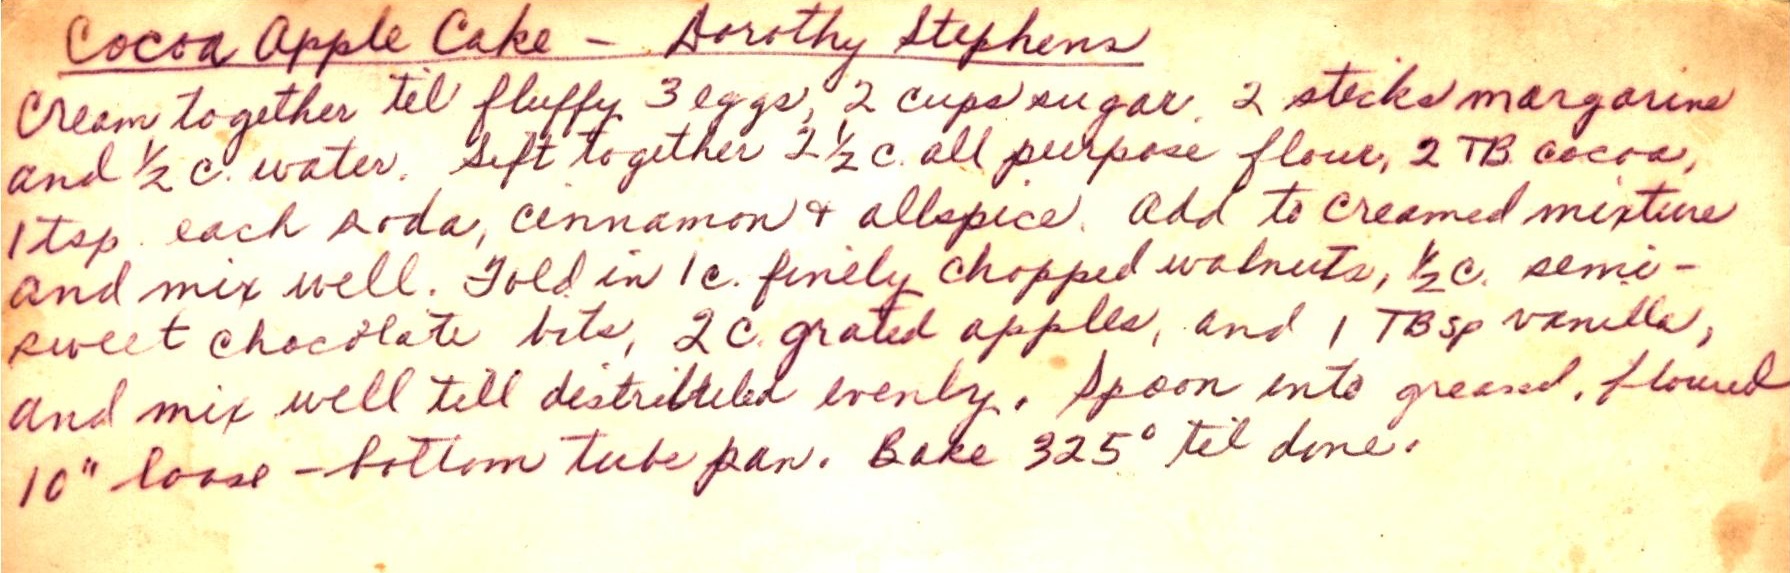 Cocoa Apple Cake - Dorothy Stephens
Cream together til fluffy 3 eggs, 2 cups sugar, 2 sticks margarine
and ½ c. water. Sift together 2½ c. all purpose flour, 2 TB. cocoa,
1 tsp. each soda, cinnamon & allspice. Add to creamed mixture
and mix well. Fold in 1 c. finely chopped walnuts, ½ c. semi-
sweet chocolate bits, 2 c. grated apples, and 1 TBsp vanilla,
and mix well till distributed evenly. Spoon into greased, floured
10" loose-bottom tube pan. Bake 325° til done.